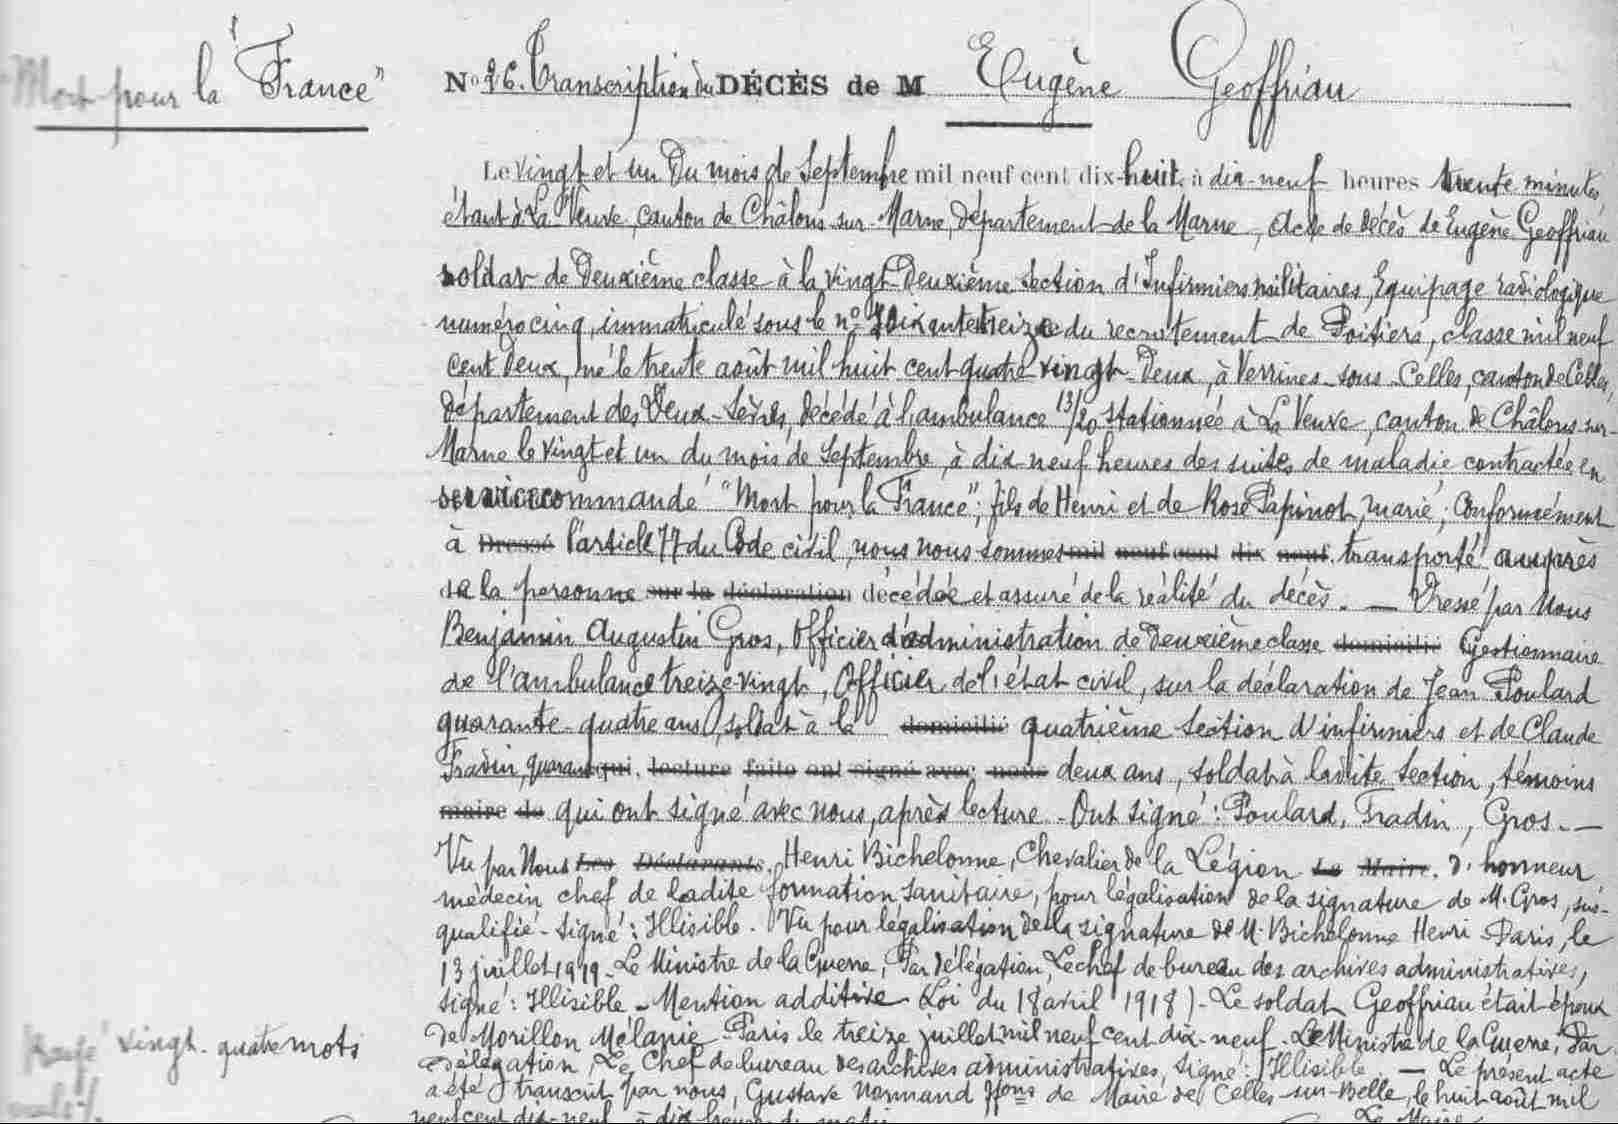 "Mort pour la France"
N° 26. Transcription du DÉCÈS de M Eugène Geoffriau
Le vingt et un du mois de Septembre mil neuf cent dix-huit, à dix-neuf heures trente minutes,
étant à La Veuve, canton de Châlons-sur-Marne, département de la Marne, Acte de décès de Eugène Geoffriau
soldat de deuxième classe à la vingt deuxième Section d'Infirmiers militaires, Equipage radiologique
numéro cinq, immatriculé sous le n° soixante treize du recrutement de Poitiers, classe mil neuf
cent deux, né le trente août mil huit cent quatre vingt-deux, à Verrines-sous-Celles, canton de Celles,
département des Deux-Sèvres, décédé à l'ambulance 13/20 stationnée à La Veuve, canton de Châlons-sur-
Marne le vingt et un du mois de Septembre, à dix neuf heures des suites de maladie contractée en
service commandé "Mort pour la France"; fils de Henri et de Rose Papinot, marié, Conformément
à Dressé l'article 77 du Code civil, nous nous sommes mil neuf cent dix neuf transporté auprès
de la personne sur la déclaration décédée et assuré de la réalité du décès. — Dressé par Nous
Benjamin Augustin Gros, Officier d'administration de deuxième classe domicilié Gestionnaire
de l'ambulance treize vingt, Officier de l'état civil, sur la déclaration de Jean Poulard
quarante-quatre ans, soldat à la domicilié quatrième Section d'infirmiers et de Claude
Fradin, quarante qui, lecture faite ont signé avec nous deux ans, soldat à ladite Section, témoins
maire de qui ont signé avec nous, après lecture - Ont signé : Poulard, Fradin, Gros. —
Vu par Nous Les Déclarants, Henri Bichelonne, Chevalier de la Légion Le Maire, d'honneur
médecin chef de ladite formation sanitaire, pour légalisation de la signature de M. Gros, sus-
qualifié - signé : Illisible. Vu pour légalisation de la signature de M. Bichelonne Henri - Paris, le
13 juillet 1919 - Le Ministre de la Guerre, Par délégation, Le chef de bureau des archives administratives,
signé : Illisible - Mention additive (Loi du 18 avril 1918) - Le soldat Geoffriau était époux
de Morillon Mélanie - Paris le treize juillet mil neuf cent dix-neuf. Le Ministre de la Guerre, Par
Rayé vingt-quatre mots
délégation, Le Chef de bureau des archives administratives, signé : Illisible — Le présent acte
nuls
a été transcrit par nous, Gustave Normand ffons de Maire de Celles-sur-Belle, le huit août mil
neuf cent dix-neuf, à dix heures du matin
Le Maire